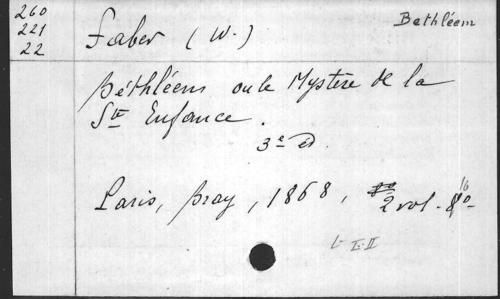 260
221
22
Faber (W.)
Bethléem
Béthléem ou le Mystère de la
Ste Enfance.
3e éd.
Paris, Bray, 1868, 2 vol. 16o
L I-II